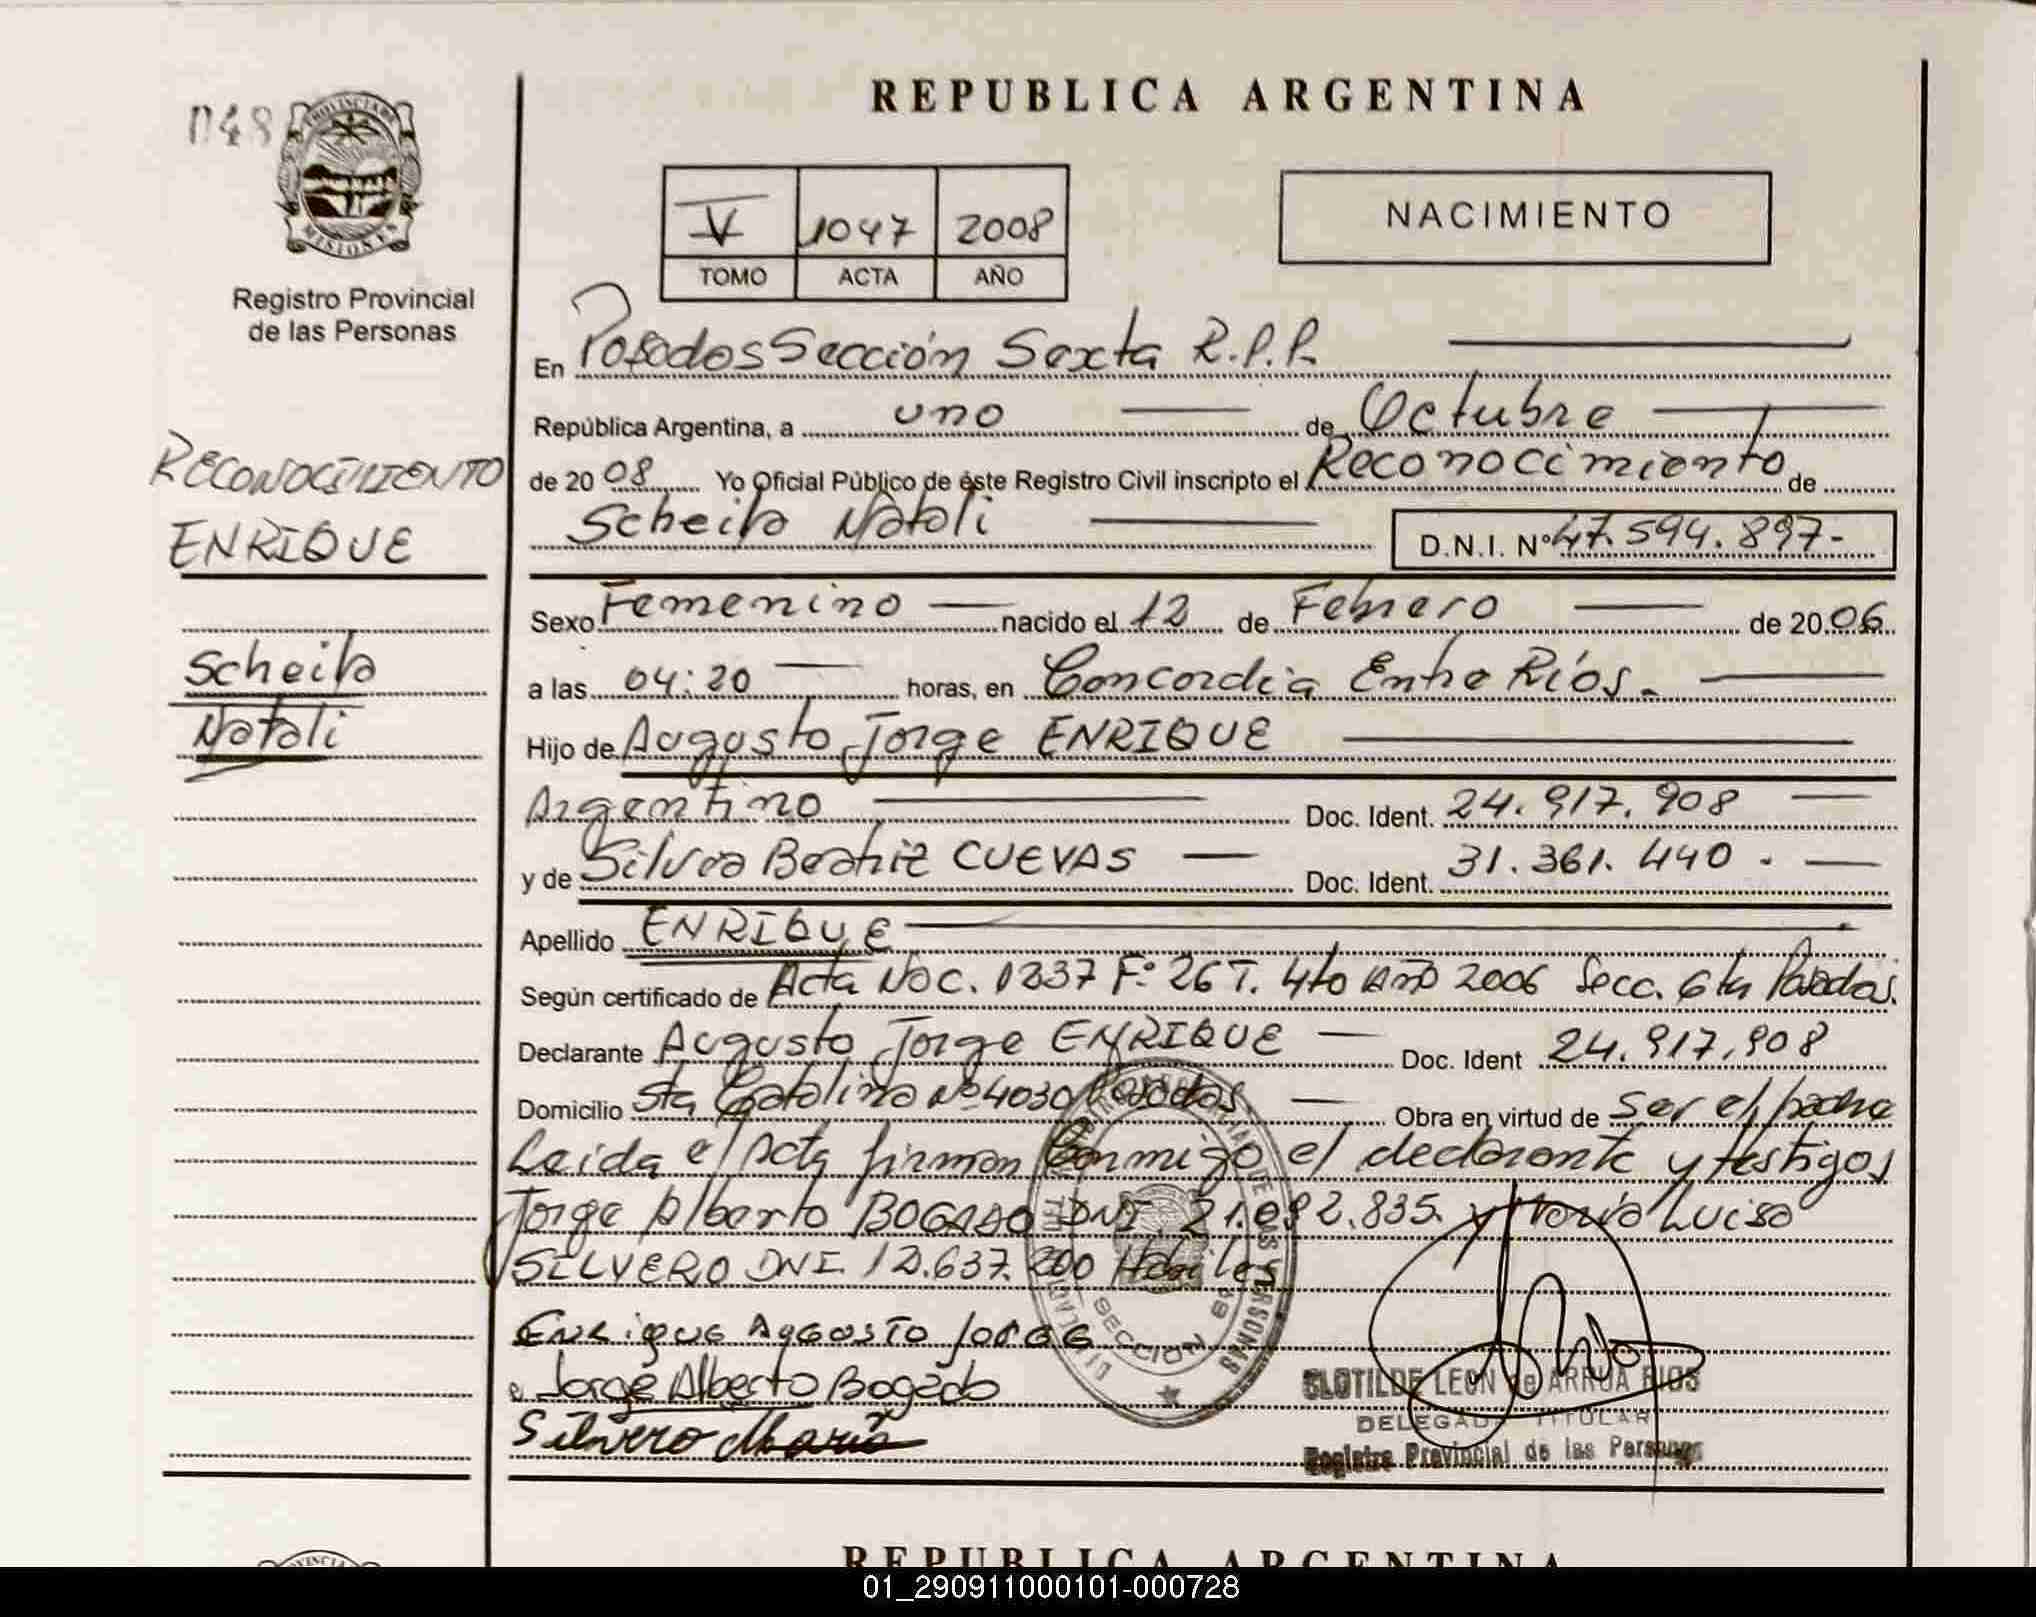 REPUBLICA ARGENTINA
048
PROVINCIA DE
MISIONES
Registro Provincial
de las Personas
V 1047 2008
TOMO ACTA AÑO
NACIMIENTO
En Posadas Sección Sexta R.P.P.
República Argentina, a uno de Octubre
de 2008 Yo Oficial Público de éste Registro Civil inscripto el Reconocimiento de
Scheila Natali D.N.I. Nº 47.594.897-
RECONOCIMIENTO
ENRIQUE
Scheila
Natali
Sexo Femenino nacido el 12 de Febrero de 2006
a las 04:20 horas, en Concordia Entre Ríos.
Hijo de Augusto Jorge ENRIQUE
Argentino Doc. Ident. 24.917.908
y de Silvia Beatriz CUEVAS Doc. Ident. 31.361.440.
Apellido ENRIQUE
Según certificado de Acta Nac. 1237 Fº 26 T. 4to Año 2006 Secc. 6ta Posadas.
Declarante Augusto Jorge ENRIQUE Doc. Ident 24.917.908
Domicilio Sta Catalina Nº 4030 Posadas Obra en virtud de ser el padre
Leida el Acta firman Conmigo el declarante y testigos
Jorge Alberto BOGADO DNI 21.092.835. y María Luisa
SILVERO DNI. 12.637.200 Hábiles
Enrique Augusto Jorge
Jorge Alberto Bogado
Silvero Maria
SECCION 6ª
CLOTILDE LEON de ARRUA RIOS
DELEGADA TITULAR
Registro Provincial de las Personas
REPUBLICA ARGENTINA
01_290911000101-000728